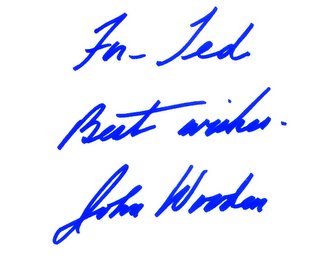 For- Ted
Best wishes.
John Wooden